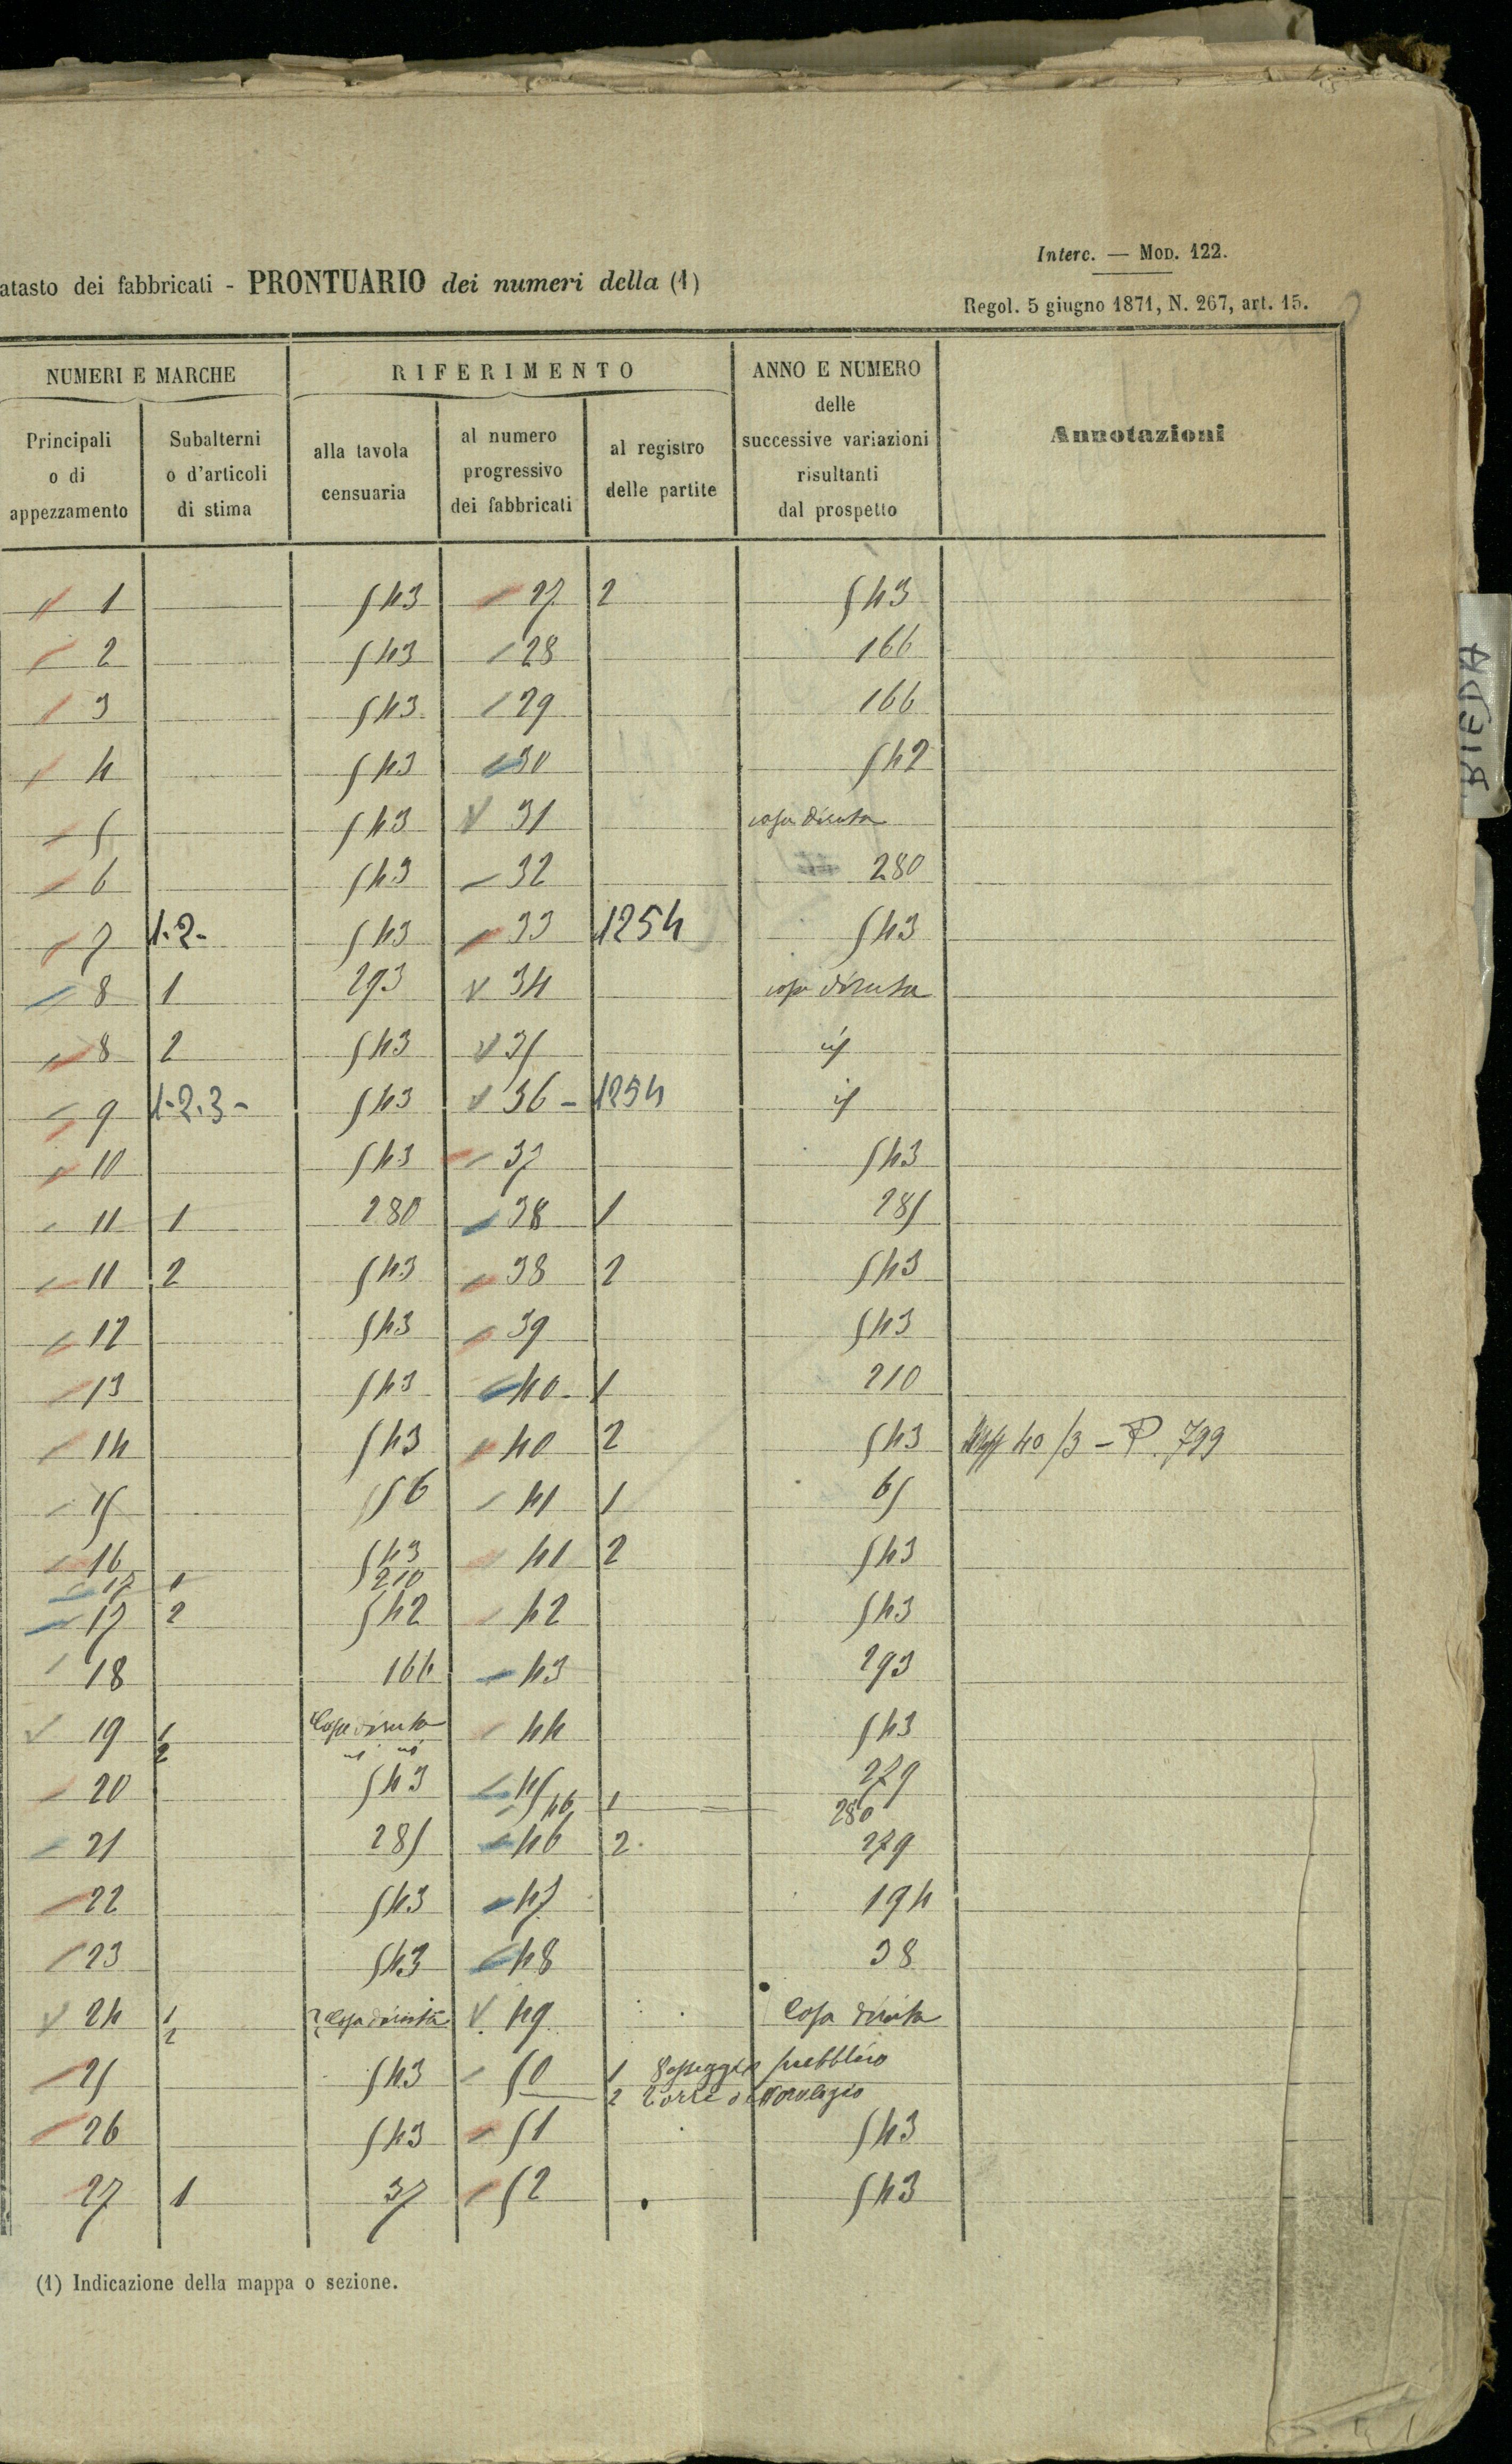 Interc. — MOD. 122.
atasto dei fabbricati - PRONTUARIO dei numeri della (1)
Regol. 5 giugno 1871, N. 267, art. 15.
NUMERI E MARCHE RIFERIMENTO ANNO E NUMERO delle successive variazioni risultanti dal prospetto Annotazioni
Principali o di appezzamento Subalterni o d'articoli di stima alla tavola censuaria al numero progressivo dei fabbricati al registro delle partite
1 543 27 2 543
2 543 28 166
3 543 29 166
4 543 30 542
5 543 31 casa diruta
6 543 32 280
7 1-2- 543 33 1254 543
8 1 293 34 casa diruta
8 2 543 35 id
9 1-2.3- 543 36 - 1254 id
10 543 37 543
11 1 280 38 1 285
11 2 543 38 2 543
12 543 39 543
13 543 40 1 210
14 543 40 2 543 40/3 - P. 799
15 56 41 1 65
16 543 41 2 543
17 1 210
17 2 542 42 543
18 166 43 293
19 1 Casa diruta 44 543
2
20 543 45 279
46 1 280
21 285 46 2 279
22 543 47 194
23 543 48 38
24 1 Casa diruta 49 Casa diruta
2
25 543 50 1 Passeggio pubblico
2 Torre dell'orologio
26 543 51 543
27 1 37 52 543
(1) Indicazione della mappa o sezione.
BIEDA